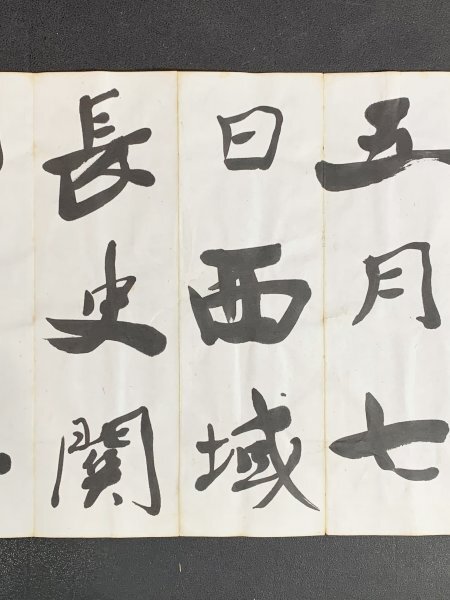 五月七
日西域
長史關